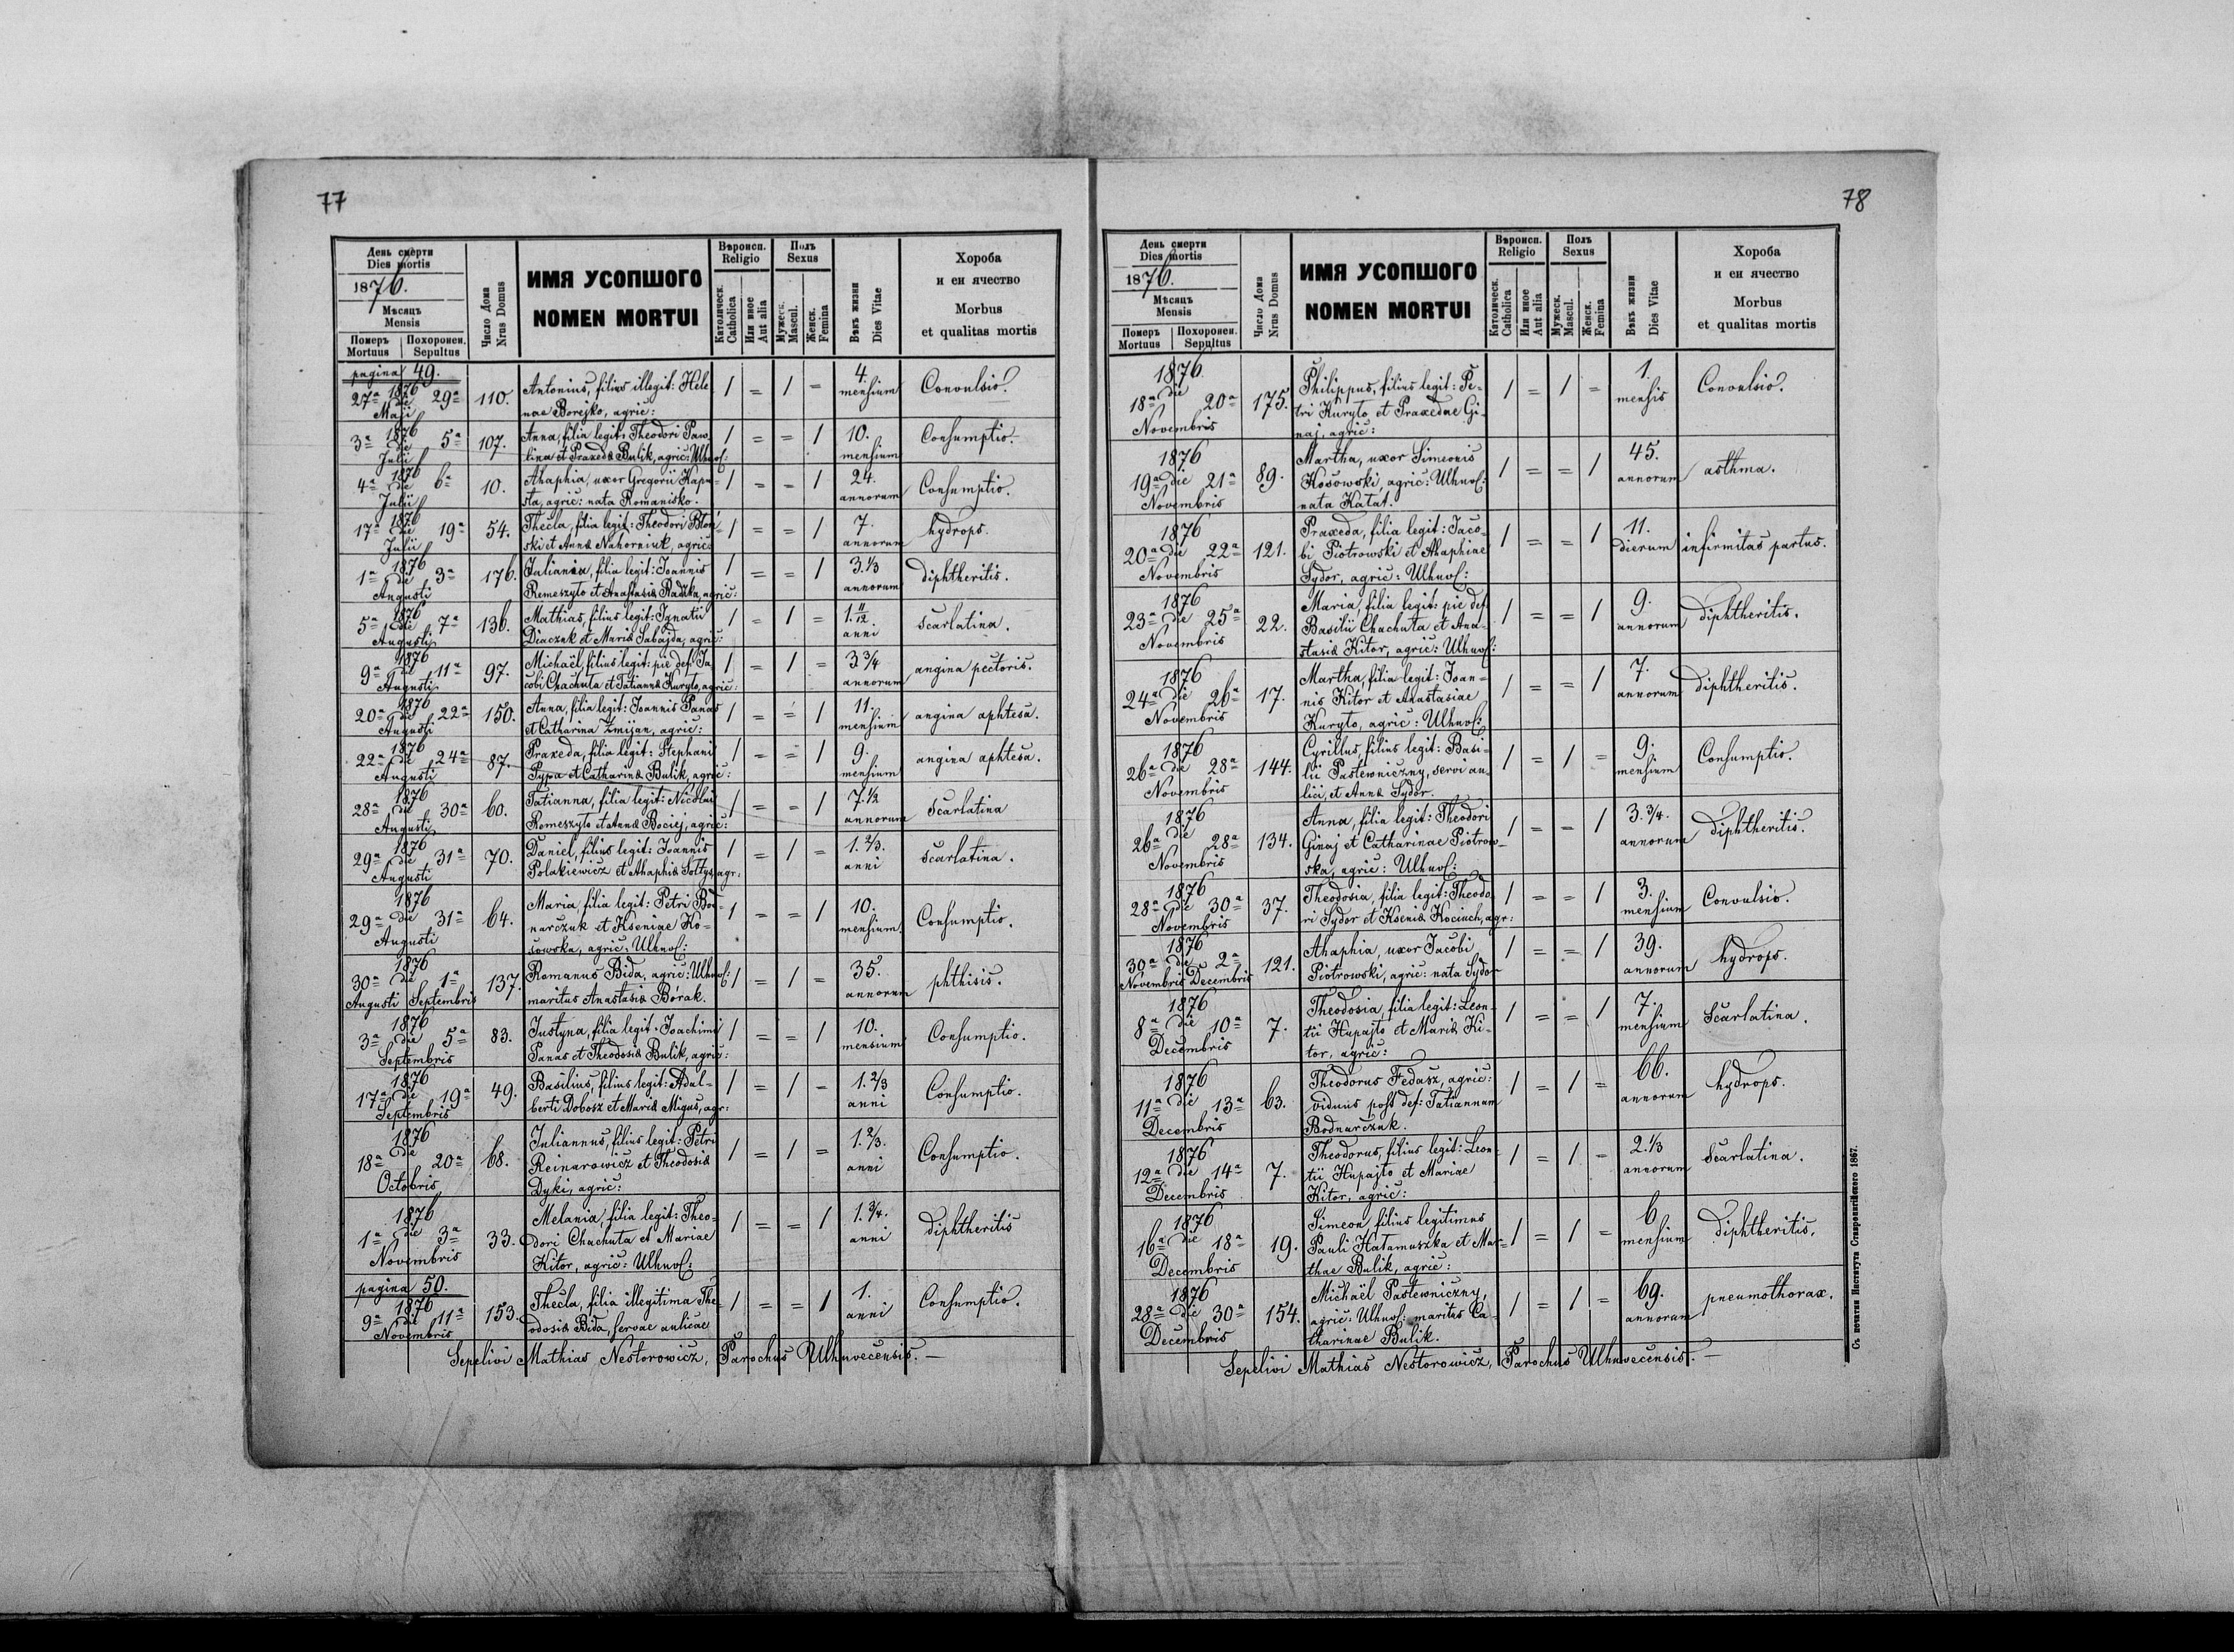 77
День смерти
Dies mortis
1876.
Мѣсяць
Mensis
Померъ
Mortuus
Похоронен.
Sepultus
Число Дома
Nrus Domus
ИМЯ УСОПШОГО
NOMEN MORTUI
Вѣроисп.
Religio
Католическ.
Catholica
Или иное
Aut alia
Полъ
Sexus
Мужеск.
Mascul.
Женск.
Femina
Вѣкъ жизни
Dies Vitae
Хороба
и еи ячество
Morbus
et qualitas mortis
pagina 49.
1876
27ª die 29ª 110. Antonius, filius illegit: Hele 1 = 1 = 4. mensium Convulsio.
Maji nae Borejko, agric:
1876
3ª die 5ª 107. Anna, filia legit: Theodori Paw 1 = = 1 10. mensium Consumptio.
Julii lina et Praxeda Bulik, agric: Uhnov:
1876
4ª die 6ª 10. Ahaphia, uxor Gregorii Kapu= 1 = = 1 24. annorum Consumptio.
Julii sta, agric: nata Romanisko.
1876
17ª die 19ª 54. Thecla, filia legit: Theodori Bloń 1 = = 1 7. annorum hydrops.
Julii ski et Anna Nahorniuk, agric:
1876
1ª die 3ª 176. Julianna, filia legit: Joannis 1 = = 1 3.1/3 annorum diphtheritis.
Augusti Remeszyło et Anastasia Radyka, agric:
1876
5ª die 7ª 136. Mathias, filius legit: Ignatii 1 = 1 = 1.11/12. anni Scarlatina.
Augusti Diaczuk et Maria Sabajda, agric:
1876
9ª die 11ª 97. Michaël, filius legit: pie def: Ja 1 = 1 = 3 3/4 annorum angina pectoris.
Augusti cobi Chachuta et Tatianna Kuryło, agric:
1876
20ª die 22ª 150. Anna, filia legit: Joannis Panas 1 = = 1 11. mensium angina aphtesa.
Augusti et Catharina Zmijan, agric:
1876
22ª die 24ª 87. Praxeda, filia legit: Stephani 1 = = 1 9. mensium angina aphtesa.
Augusti Pypa et Catharina Bulik, agric:
1876
28ª die 30ª 60. Tatianna, filia legit: Nicolai 1 = = 1 7.1/2 annorum Scarlatina
Augusti Remeszyło et Anna Bociej, agric:
1876
29ª die 31ª 70. Daniel, filius legit: Joannis 1 = 1 = 1.2/3. anni Scarlatina.
Augusti Polakiewicz et Ahaphia Sołtys, agr:
1876
29ª die 31ª 64. Maria filia legit: Petri Bod= 1 = = 1 10. mensium. Consumptio.
Augusti narczuk et Kseniae Ko=
sowska, agric: Uhnov:
1876
30ª die 1ª 137. Romanus Bida, agric: Uhnov: 1 = 1 = 35. annorum phthisis.
Augusti Septembris maritus Anastasia Borak.
1876
3ª die 5ª 83. Justyna, filia legit: Joachimi 1 = = 1 10. mensium Consumptio.
Septembris Panas et Theodosia Bulik, agric:
1876
17ª die 19ª 49. Basilius, filius legit: Adal= 1 = 1 = 1.2/3 anni Consumptio.
Septembris berti Dobosz et Maria Migus, agr:
1876
18ª die 20ª 68. Juliannus, filius legit: Petri 1 = 1 = 1.2/3. anni Consumptio.
Octobris Reinarowicz et Theodosia
Dyki, agric:
1876
1ª die 3ª 33. Melania, filia legit: Theo= 1 = = 1 1.3/4. anni diphtheritis
Novembris dori Chachuta et Mariae
Kitor, agric: Uhnov:
pagina 50.
1876
9ª die 11ª 153. Thecla, filia illegitima The= 1 = = 1 1. anni Consumptio.
Novembris odosia Bida, servae aulicae
Sepelivi Mathias Nestorowicz, Parochus Uhnovecensis.
78
День смерти
Dies mortis
1876.
Мѣсяць
Mensis
Померъ
Mortuus
Похоронен.
Sepultus
Число Дома
Nrus Domus
ИМЯ УСОПШОГО
NOMEN MORTUI
Вѣроисп.
Religio
Католическ.
Catholica
Или иное
Aut alia
Полъ
Sexus
Мужеск.
Mascul.
Женск.
Femina
Вѣкъ жизни
Dies Vitae
Хороба
и еи ячество
Morbus
et qualitas mortis
1876
18ª die 20ª 175. Philippus, filius legit: Pe= 1 = 1 = 1. mensis Convulsio.
Novembris tri Kuryło et Praxedae Gi=
naj, agric:
1876
19ª die 21ª 89. Martha, uxor Simeonis 1 = = 1 45. annorum asthma.
Novembris Kosowski, agric: Uhnov:
nata Katat.
1876
20ª die 22ª 121. Praxeda, filia legit: Jaco= 1 = = 1 11. dierum infirmitas partus.
Novembris bi Piotrowski et Ahaphiae
Sydor, agric: Uhnov:
1876
23ª die 25ª 22. Maria, filia legit: pie def: 1 = = 1 9. annorum diphtheritis.
Novembris Basilii Chachuta et Ana=
stasia Kitor, agric: Uhnov:
1876
24ª die 26ª 17. Martha, filia legit: Joan= 1 = = 1 7. annorum diphtheritis.
Novembris nis Kitor et Anastasiae
Kuryło, agric: Uhnov:
1876
26ª die 28ª 144. Cyrillus, filius legit: Basi= 1 = 1 = 9. mensium Consumptio.
Novembris lii Pastewniczny, servi au=
lici, et Anna Sydor.
1876
26ª die 28ª 134. Anna, filia legit: Theodori 1 = = 1 3.3/4. annorum diphtheritis.
Novembris Ginaj et Catharinae Piotrow=
ska, agric: Uhnov:
1876
28ª die 30ª 37. Theodosia, filia legit: Theodo 1 = = 1 3. mensium Convulsio.
Novembris ri Sydor et Ksenia Kociuch, agr:
1876
30ª die 2ª 121. Ahaphia, uxor Jacobi 1 = = 1 39. annorum hydrops.
Novembris Decembris Piotrowski, agric: nata Sydor
1876
8ª die 10ª 7. Theodosia, filia legit: Leon= 1 = = 1 7. mensium Scarlatina.
Decembris tii Hupajło et Maria Ki=
tor, agric:
1876
11ª die 13ª 63. Theodorus Fedasz, agric: 1 = 1 = 66. annorum hydrops.
Decembris viduus post def: Tatiannam
Bodnarczuk.
1876
12ª die 14ª 7. Theodorus, filius legit: Leon= 1 = 1 = 2.1/3 annorum Scarlatina.
Decembris tii Hupajło et Mariae
Kitor, agric:
1876
16ª die 18ª 19. Simeon, filius legitimus 1 = 1 = 6 mensium diphtheritis.
Decembris Pauli Hałamuszka et Mar=
thae Bulik, agric:
1876
28ª die 30ª 154. Michaël Pastewniczny, 1 = 1 = 69. annorum pneumothorax.
Decembris agric: Uhnov: maritus Ca=
tharinae Bulik.
Sepelivi Mathias Nestorowicz, Parochus Uhnovecensis.
Съ печатни Института Ставропигійского 1867.